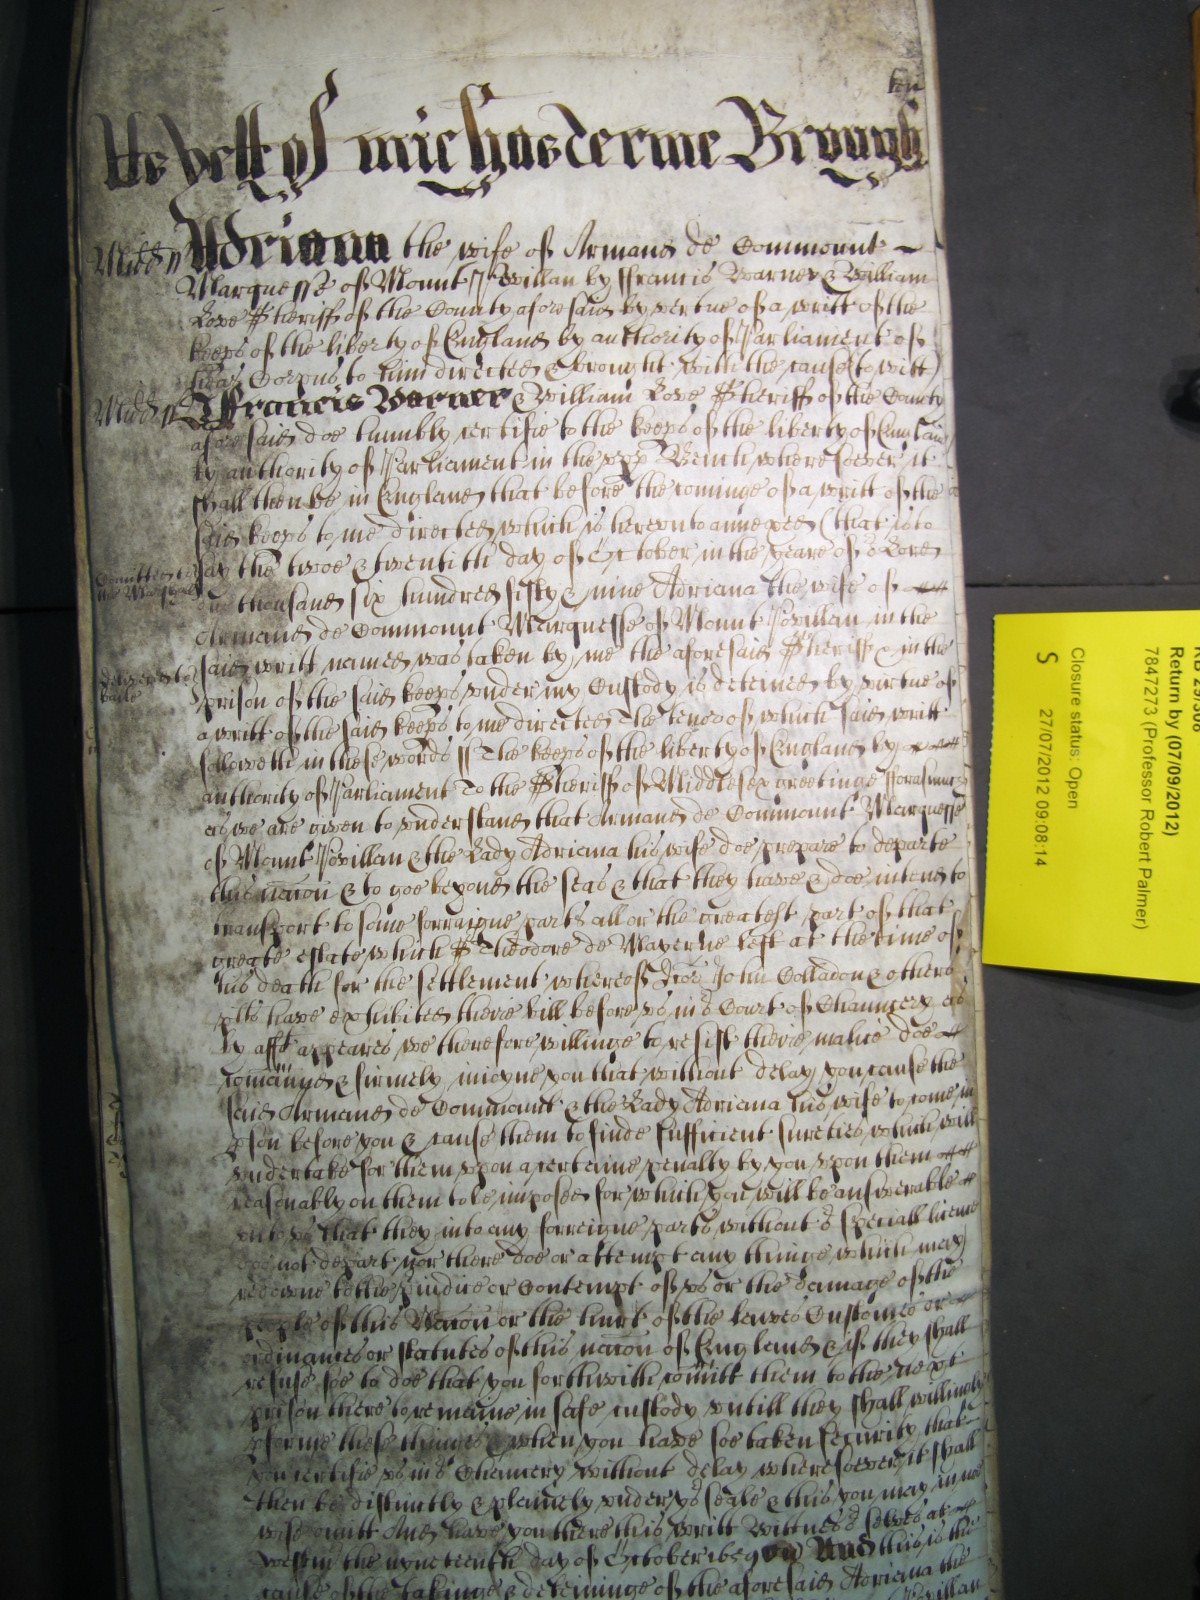 As yett of Michas terme Brough
Midd ss Adriana the wife of Armand de Commount
Marquesse of Mount Powillan by Francis Warner & William
Love Sheriff of the County aforesaid by vertue of a writt of the
keeps of the liberty of England by authority of Parliament of
heas Corpus to him directed & brought with the cause (to witt)
Midd ss Francis Warner & William Love Sheriff of the County
aforesaid doe humbly certifie to the keeps of the liberty of England
by authority of Parliament in the upp Bench wheresoever it
shall then be in England that before the cominge of a writt of the
said keeps to me directed which is hereunto annexed (that is to
say the twoe & twentith day of October in the yeare of or Lord
Comitted to
the Marshall
one thousand six hundred fifty & nine Adriana the wife of
Armand de Commount Marquesse of Mount Powillan in the
said writt named was taken by me the aforesaid Sheriff & in the
delivered to
baile
prison of the said keeps under my Custody is deteined by virtue of
a writt of the said keeps to me directed The tenor of which said writt
followeth in these words ss The keeps of the liberty of England by
authority of Parliament To the Sheriff of Middlesex greetinge Forasmuch
as we are given to understand that Armand de Commount Marquesse
of Mount Powillan & the Lady Adriana his wife doe prepare to departe
this nacon & to goe beyond the seas & that they have & doe intend to
transport to some forraigne parts all or the greatest part of that
greate estate which Sr Theodore de Mayerne left at the time of
his death for the settlement whereof John Colladon & others
plts have exhibited theire bill before us in or Court of Chauncery as
by afft appeares we therefore willinge to resist theire malice doe
comaund & firmely inioyne you that without delay you cause the
said Armand de Commount & the Lady Adriana his wife to come in
pson before you & cause them to finde sufficient sureties which will
undertake for them upon a certaine penalty by you upon them
reasonably on them to be imposed for which you will be answerable
unto us that they into any forreigne parts without or speciall licence
do not depart nor there doe or attempt any thinge which may
redowne to the piudice or Contempt of us or the damage of the
people of this Nacon or the hurt of the lawes Customes or
ordinances or statutes of this nacon of England & if they shall
refuse soe to doe that you forthwith comitt them to the next
prison there to remaine in safe custody untill they shall willingly
pforme these things & when you have soe taken security that
you certifie us in or Chancery without delay wheresoever it shall
then be distinctly & plainely under yor seale & this you may in no
wise omitt And have you there this writt Wittnes or selves at
Westm the nyneteenth day of October 1659 And this is the
cause of the takinge & deteininge of the aforesaid Adriana the
KB 29/308
Return by (07/09/2012)
7847273 (Professor Robert Palmer)
Closure status: Open
S 27/07/2012 09:08:14